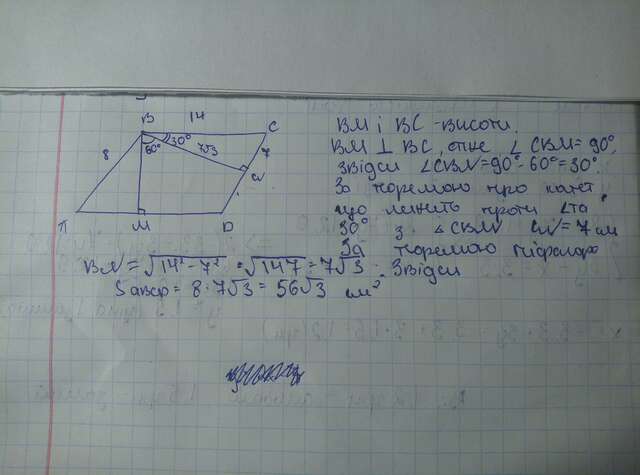 B 14 C
8 60° 30° 7√3 7
N
A M D
BM і BC - висоти.
BM ⊥ BC, отже ∠CBM = 90°,
звідси ∠CBN = 90° - 60° = 30°.
За теоремою про катет
що лежить проти кута
30° з △CBN CN = 7 см
За теоремою Піфагора
BN = √14² - 7² = √147 = 7√3 Звідси
SABCD = 8 · 7√3 = 56√3 см²